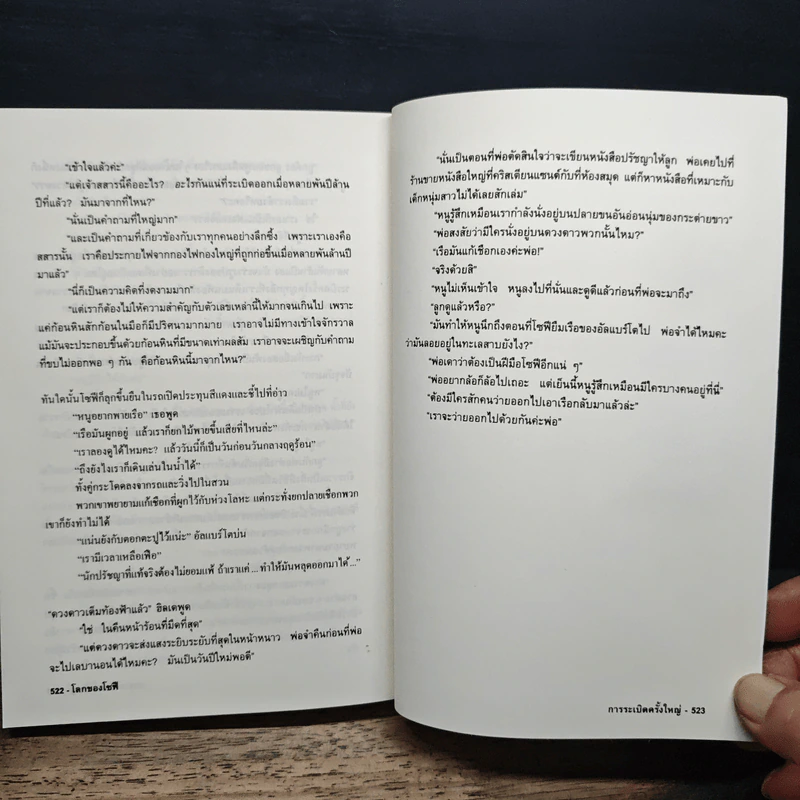 "เข้าใจแล้วค่ะ"
"แต่เจ้าสสารนี้คืออะไร? อะไรกันแน่ที่ระเบิดออกเมื่อหลายพันปีล้าน
ปีที่แล้ว? มันมาจากที่ไหน?"
"นั่นเป็นคำถามที่ใหญ่มาก"
"และเป็นคำถามที่เกี่ยวข้องกับเราทุกคนอย่างลึกซึ้ง เพราะเราเองคือ
สสารนั้น เราคือประกายไฟจากกองไฟกองใหญ่ที่ถูกก่อขึ้นเมื่อหลายพันล้านปี
มาแล้ว"
"นี่ก็เป็นความคิดที่งดงามมาก"
"แต่เราก็ต้องไม่ให้ความสำคัญกับตัวเลขเหล่านี้ให้มากจนเกินไป เพราะ
แค่ก้อนหินสักก้อนในมือก็มีปริศนามากมาย เราอาจไม่มีทางเข้าใจจักรวาล
แม้มันจะประกอบขึ้นด้วยก้อนหินที่มีขนาดเท่าผลส้ม เราอาจจะเผชิญกับคำถาม
ที่ขบไม่ออกพอ ๆ กัน คือก้อนหินนี้มาจากไหน?"
ทันใดนั้นโซฟีก็ลุกขึ้นยืนในรถเปิดประทุนสีแดงและชี้ไปที่อ่าว
"หนูอยากพายเรือ" เธอพูด
"เรือมันผูกอยู่ แล้วเราก็ยกไม้พายขึ้นเสียที่ไหนล่ะ"
"เราลองดูได้ไหมคะ? แล้ววันนี้ก็เป็นวันก่อนวันกลางฤดูร้อน"
"ถึงยังไงเราก็เดินเล่นในน้ำได้"
ทั้งคู่กระโดดลงจากรถและวิ่งไปในสวน
พวกเขาพยายามแก้เชือกที่ผูกไว้กับห่วงโลหะ แต่กระทั่งยกปลายเชือกพวก
เขาก็ยังทำไม่ได้
"แน่นยังกับตอกตะปูไว้แน่ะ" อัลแบร์โตบ่น
"เรามีเวลาเหลือเฟือ"
"นักปรัชญาที่แท้จริงต้องไม่ยอมแพ้ ถ้าเราแค่... ทำให้มันหลุดออกมาได้..."
"ดวงดาวเต็มท้องฟ้าแล้ว" ฮิลเดพูด
"ใช่ ในคืนหน้าร้อนที่มืดที่สุด"
"แต่ดวงดาวจะส่งแสงระยิบระยับที่สุดในหน้าหนาว พ่อจำคืนก่อนที่พ่อ
จะไปเลบานอนได้ไหมคะ? มันเป็นวันปีใหม่พอดี"
522 - โลกของโซฟี
"นั่นเป็นตอนที่พ่อตัดสินใจว่าจะเขียนหนังสือปรัชญาให้ลูก พ่อเคยไปที่
ร้านขายหนังสือใหญ่ที่คริสเตียนแซนด์กับที่ห้องสมุด แต่ก็หาหนังสือที่เหมาะกับ
เด็กหนุ่มสาวไม่ได้เลยสักเล่ม"
"หนูรู้สึกเหมือนเรากำลังนั่งอยู่บนปลายขนอันอ่อนนุ่มของกระต่ายขาว"
"พ่อสงสัยว่ามีใครนั่งอยู่บนดวงดาวพวกนั้นไหม?"
"เรือมันแก้เชือกเองค่ะพ่อ!"
"จริงด้วยสิ"
"หนูไม่เห็นเข้าใจ หนูลงไปที่นั่นและดูดีแล้วก่อนที่พ่อจะมาถึง"
"ลูกดูแล้วหรือ?"
"มันทำให้หนูนึกถึงตอนที่โซฟียืมเรือของอัลแบร์โตไป พ่อจำได้ไหมคะ
ว่ามันลอยอยู่ในทะเลสาบยังไง?"
"พ่อเดาว่าต้องเป็นฝีมือโซฟีอีกแน่ ๆ"
"พ่ออยากล้อก็ล้อไปเถอะ แต่เย็นนี้หนูรู้สึกเหมือนมีใครบางคนอยู่ที่นี่"
"ต้องมีใครสักคนว่ายออกไปเอาเรือกลับมาแล้วล่ะ"
"เราจะว่ายออกไปด้วยกันค่ะพ่อ"
การระเบิดครั้งใหญ่ - 523